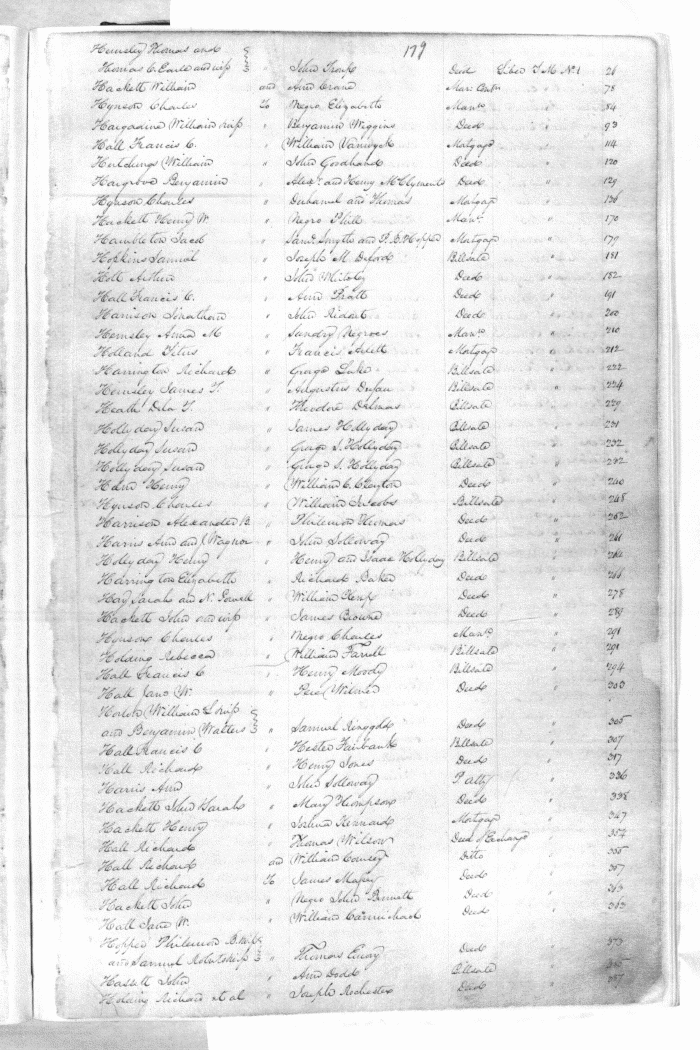 179
Hemsley Thomas and
Thomas C. Earle and wife " John Troup Deed Liber T M No 1 26
Hackett William and Ann Crane Mar: Contr 78
Hynson Charles To Negro Elizabeth Mann 84
Hargadine William wife " Benjamin Wiggins Deed " 93
Hall Francis C. " William Vanwyck Mortgage " 114
Hutchings William " John Goodhand Deed " 120
Hargrove Benjamin " Alexr and Henry McClyments Deed " 129
Hynson Charles " Duhamel and Thomas Mortgage " 136
Hackett Henry W. " Negro Phill Mann " 170
Hambleton Jacob " Saml Smyth and P. B. Hopper Mortgage " 179
Hopkins Samuel " Joseph M. Deford Billsale " 181
Holt Arthur " John Whiteley Deed " 182
Hall Francis C. " Ann Pratt Deed " 191
Harrison Jonathan " John Ridout Deed " 200
Hemsley Anna M " Sundry Negroes Mann " 210
Holland Titus " Francis Arlett Mortgage " 212
Harrington Richard " George Luke Billsale " 222
Hemsley James T. " Augustus Billsale " 224
Heath T. " Theodore Billsale " 229
Hollyday Susan " James Hollyday Billsale " 231
Hollyday Susan " George S. Hollyday Billsale " 232
Hollyday Susan " George S. Hollyday Billsale " 232
Henry " William C. Clayton Deed " 240
Hynson Charles " William Jacobs Billsale " 248
Harrison Alexander B. " Philemon Thomas Deed " 262
Harris Ann and Wagner " John Solloway Deed " 261
Hollyday Henry " Henry and Isaac Hollyday Billsale " 264
Harrington Elizabeth " Richard Baker Deed " 266
Hay Sarah and N. Powell " William Kemp Deed " 278
Hackett John and wife " James Bowne Deed " 289
Charles " Negro Charles Mann " 291
Holding Rebecca " William Farrell Billsale " 291
Hall Francis C " Henry Moody Billsale " 294
Hall Jane W. " Wilmer Deed " 303
William L wife
and Benjamin Walters " Samuel Ringgold Deed " 305
Hall Francis C " Hester Fairbank Billsale " 307
Hall Richard " Henry Jones Deed " 317
Harris Ann " John Solloway P atty " 336
Hackett John Sarah " Mary Thompson Deed " 338
Hackett Henry " Joshua Kennard Mortgage " 347
Hall Richard " Thomas Wilson Deed of Exchange " 354
Hall Richard and William Coursey Ditto " 355
Hall Richard To James Deed " 357
Hackett John " Negro John Bennett Deed " 363
Hall Jane W. " William Carmichael Deed " 363
Hopper Philemon B. wife
and Samuel wife " Thomas Emory Deed " 373
Hassett John " Ann Dodd Billsale "
Holding Richard et al " Joseph Rochester Deed "